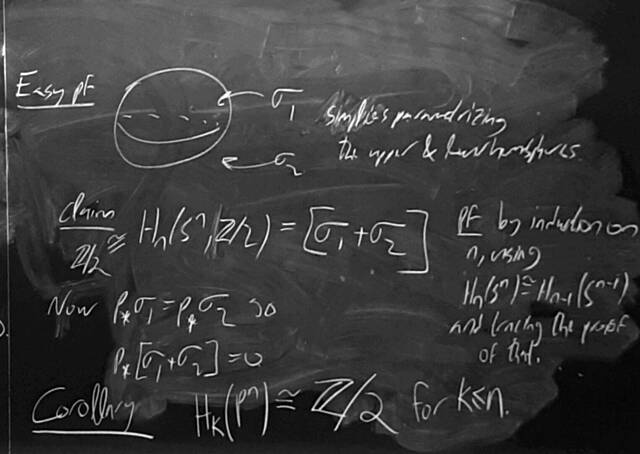 Easy pf
σ₁
simplices parametrizing
the upper & lower hemispheres
σ₂
Claim
Z/2 ≅ Hₙ(Sⁿ, Z/2) = [σ₁+σ₂]
Pf by induction on
n, using
Hₙ(Sⁿ) ≅ Hₙ₋₁(Sⁿ⁻¹)
and tracing the proof
of that.
Now P⁎σ₁ = P⁎σ₂ so
P⁎[σ₁+σ₂] = 0
Corollary Hₖ(Pⁿ) ≅ Z/2 for k≤n.